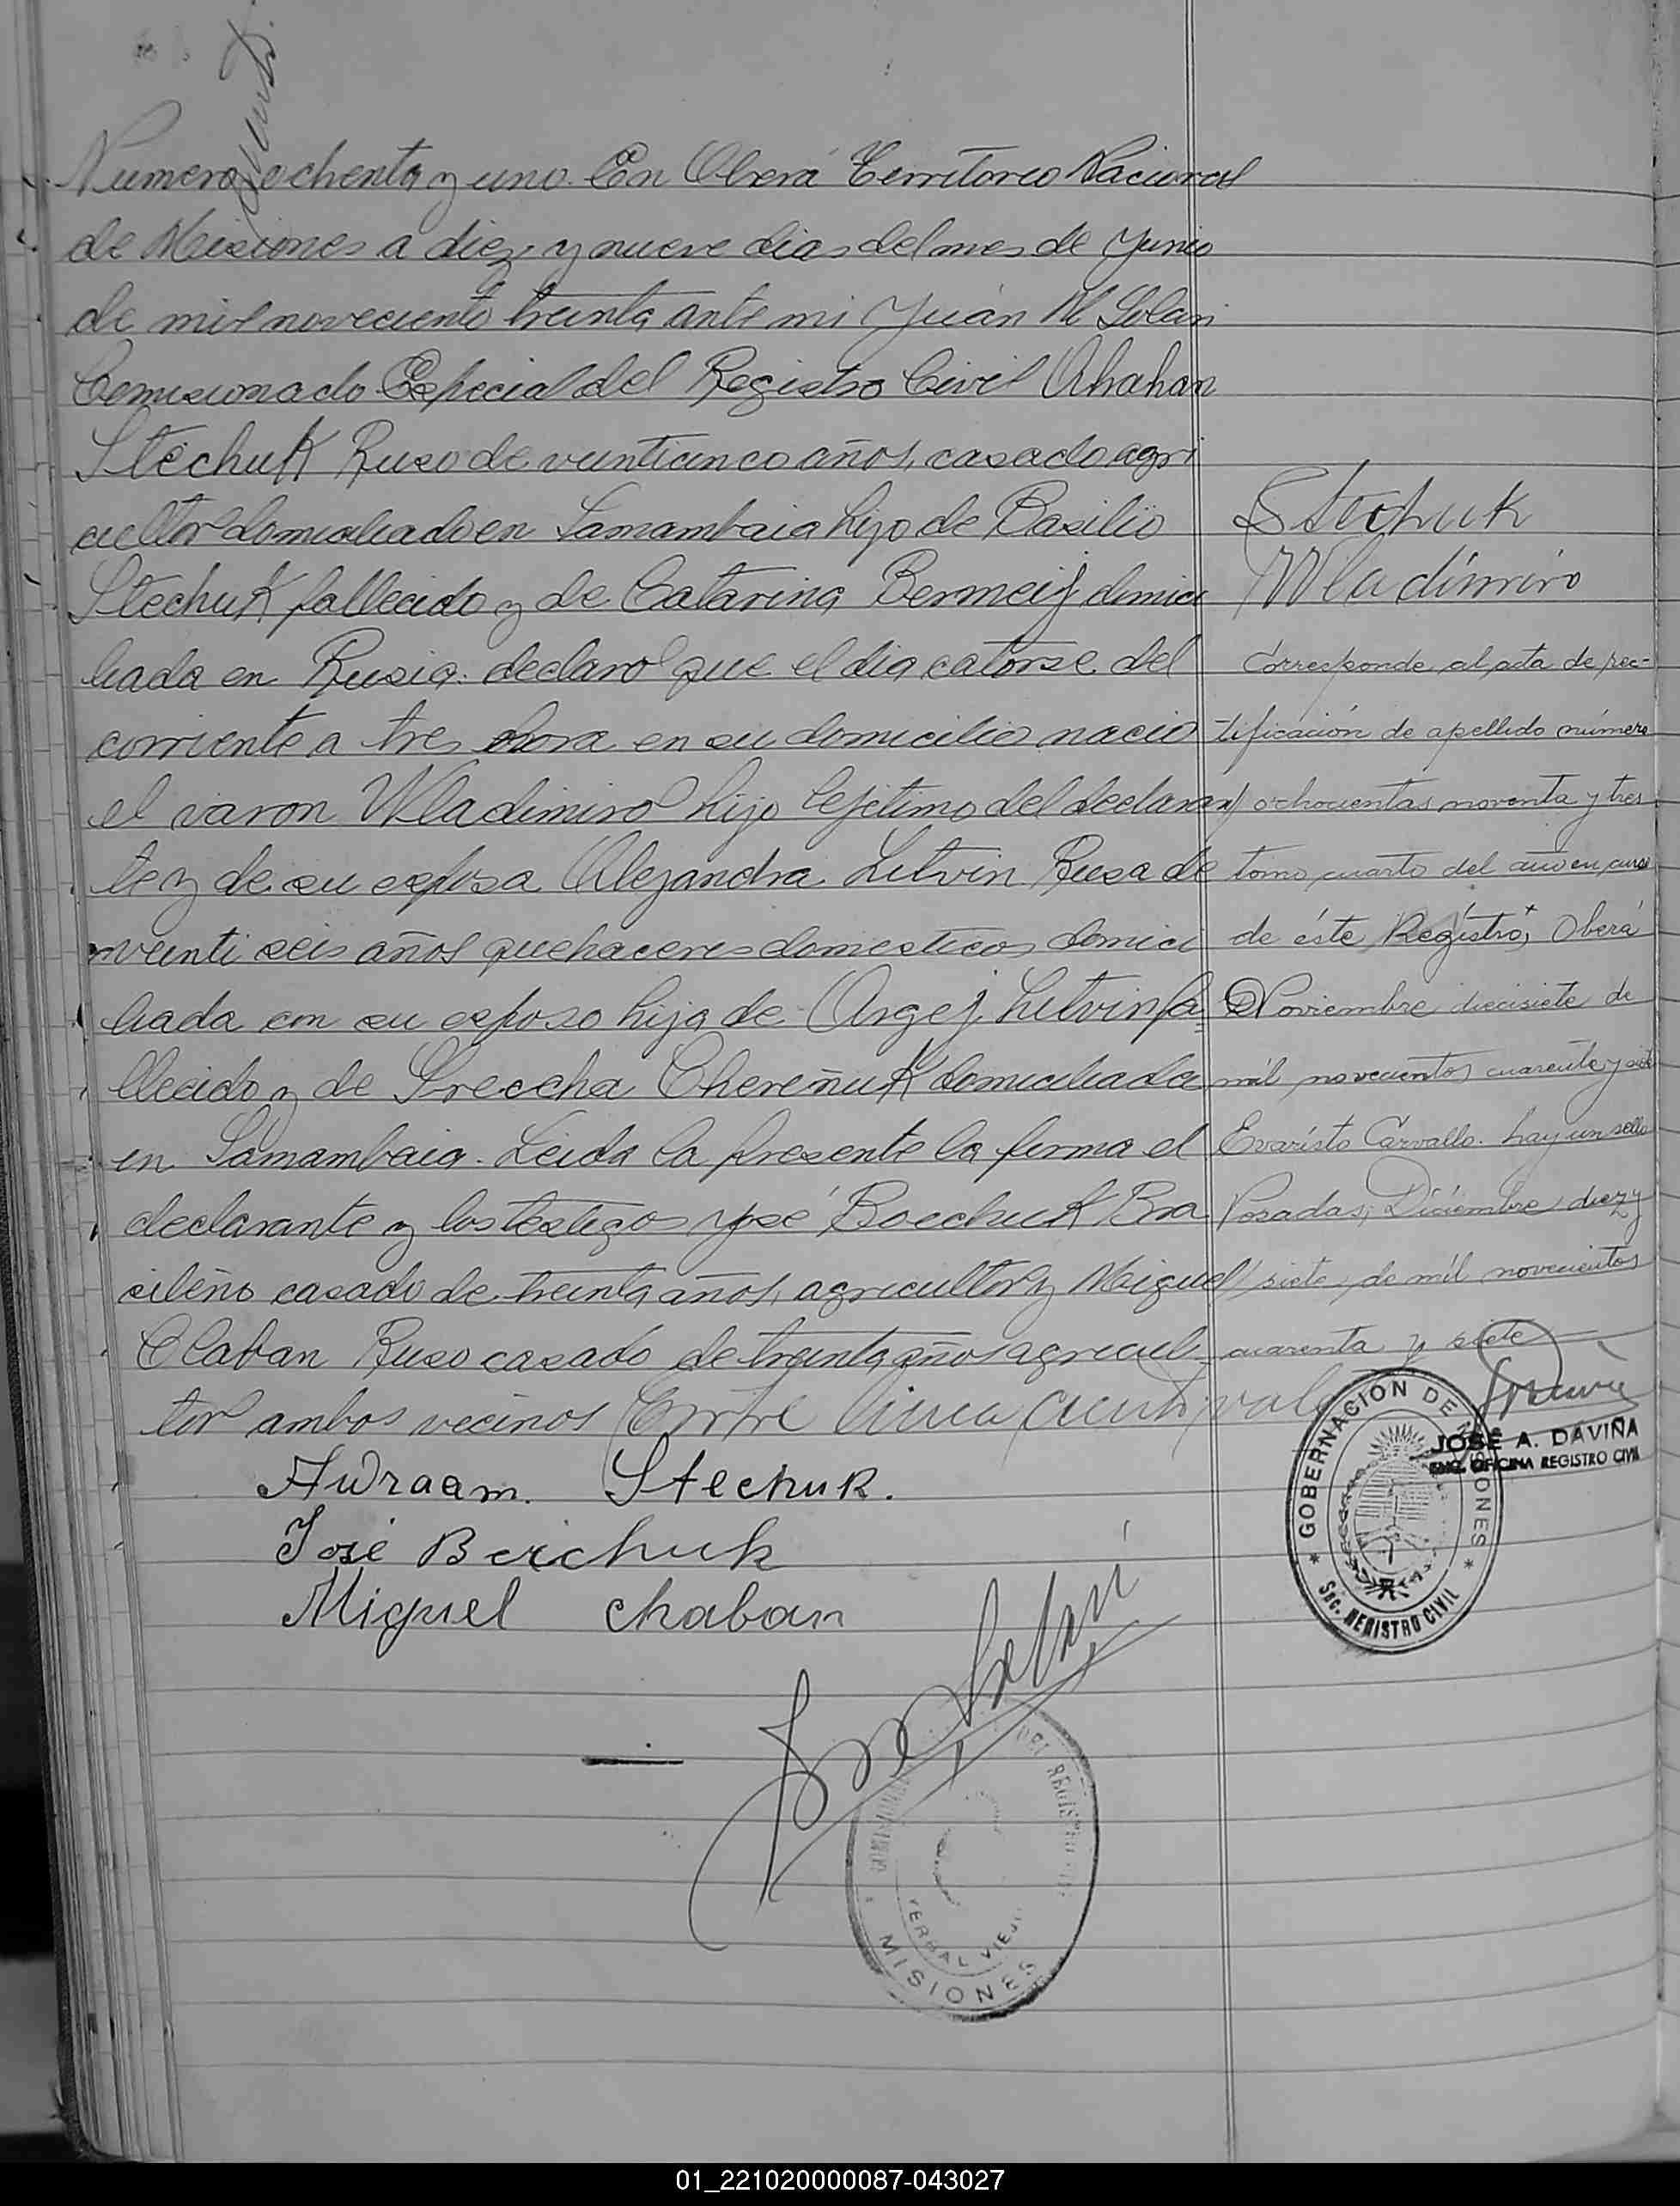 ciento
Numero ochenta y uno. En Oberá Territorio Nacional
de Misiones a diez y nueve dias del mes de Junio
de mil noveciento treinta ante mi Juan M Solari
Comisionado Especial del Registro Civil Abahan
Stechuk Ruso de veinticinco años, casado agri
cultor domiciliado en Samambaia hijo de Basilio
Stechuk fallecido y de Catarina Bermeij domici
liada en Rusia: declaró que el dia catorse del
corriente a tres hora en su domicilio nació
el varon Wladimiro hijo lejitimo del declaran
te y de su esposa Alejandra Litvin Rusa de
veinti seis años quehaceres domesticos domici
liada con su esposo hija de Argej Litvin fa
llecido y de Chereñuk domiciliada
en Samambaia. Leida la presente la firma el
declarante y los testigos José Boechuk Bra
sileño casado de treinta años, agricultor y Miguel
Claban Ruso casado de treinta años agricul
tor ambos vecinos Entre linea ciento vale
Awraam. Stechuk.
José Berchuk
Miguel Chaban
Stechuk
Wladimiro
Corresponde al acta de rec-
tificación de apellido número
ochocientos noventa y tres
tomo cuarto del año en curso
de éste Registro; Oberá
Noviembre diecisiete de
mil novecientos cuarenta y siete
Evaristo Carvallo. hay un sello
Posadas, Diciembre diez y
siete de mil novecientos
cuarenta y siete
JOSÉ A. DAVIÑA
ENC. OFICINA REGISTRO CIVIL
GOBERNACION DE MISIONES
SEC. REGISTRO CIVIL
DEL REGISTRO
YERBAL VIEJO
MISIONES
01_221020000087-043027